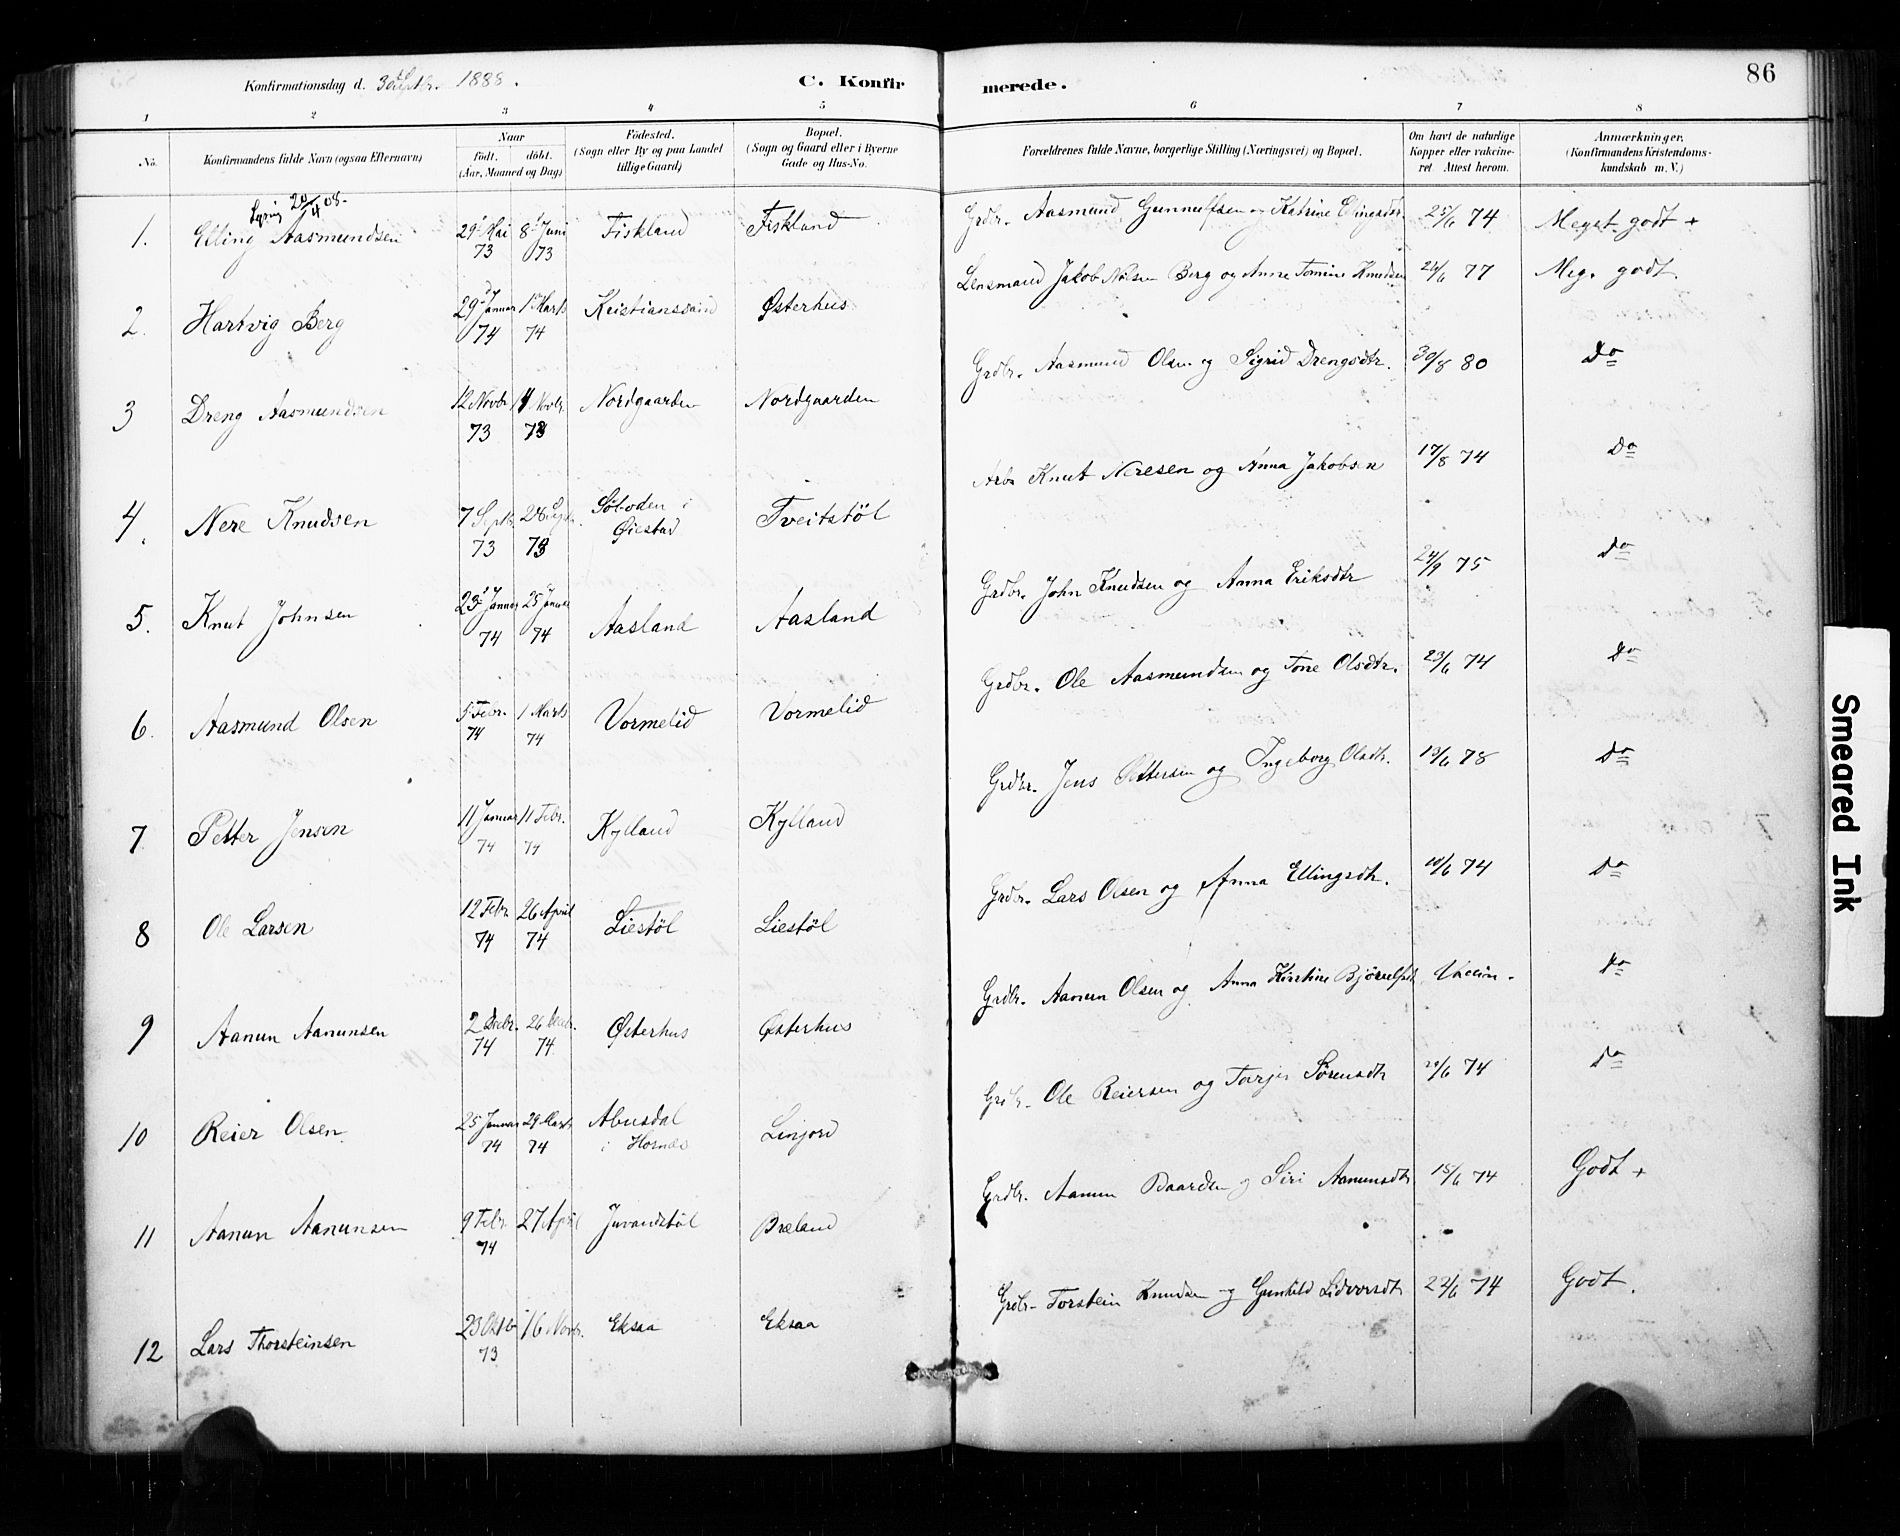 86
Konfirmationsdag d. 30te Septbr. 1888.
C. Konfirmerede.
1 2 3 4 5 6 7 8
No.
Konfirmandens fulde Navn (ogsaa Efternavn)
Naar
født. døbt.
(Aar, Maaned og Dag)
Fødested.
(Sogn eller By og paa Landet
tillige Gaard)
Bopæl.
(Sogn og Gaard eller i Byerne
Gade og Hus-No.
Forældrenes fulde Navne, borgerlige Stilling (Næringsvei) og Bopæl.
Om havt de naturlige
Kopper eller vakcine-
ret. Attest herom.
Anmærkninger.
(Konfirmandens Kristendoms-
kundskab m. V.)
20/4 08.
1. Elling Aasmundsen 29 Mai 73 8 Juni 73 Fiskland Fiskland Grdbr. Aasmund Gunnulfsen og Katrine Ellingsdtr. 25/6 74 Meget godt +
2. Hartvig Berg 29 Januar 74 1 Marts 74 Kristianssand Østerhus Lensmand Jakob Nilsen Berg og Anne Tomine Knudsen 26/6 77 Meg. godt.
3 Dreng Aasmundsen 12 Novbr 73 Novbr. 73 Nordgaarden Nordgaarden Grdbr. Aasmund Olsen og Sigrid Drengsdtr. 30/8 80 Do
4. Nere Knudsen 7 Septbr. 73 28 Septbr. 73 Søboden i Øiestad Tveitstøl Arb. Knut Neresen og Anna Jakobsen 17/8 74 Do
5. Knut Johnsen 23 Januar 74 25 Januar 74 Aasland Aasland Grdbr. John Knudsen og Anna Eriksdtr 24/9 75 Do
6. Aasmund Olsen 5 Febr. 74 1 Marts 74 Vormelid Vormelid Grdbr. Ole Aasmundsen og Tone Olsdtr. 23/6 74 Do
7 Petter Jensen 11 Januar 74 11 Febr. 74 Kylland Kylland Grdbr. Jens Pettersen og Ingeborg Olsdtr. 19/6 78 Do
8 Ole Larsen 12 Febr 74 26 April 74 Liestøl Liestøl Grdbr. Lars Olsen og Anna Ellingsdtr. 10/6 74 Do
9 Aanun Aanunsen 2 74 26 74 Østerhus Østerhus Grdbr. Aanun Olsen og Anna Kirstine Vaccin. Do
10 Reier Olsen 25 Januar 74 29 Marts 74 Abusdal i Hornæs Linjord Grdbr. Ole Reiersen og Torjer Sørensdtr 74 Do
11 Aanun Aanunsen 9 Febr. 74 27 April Juvandstøl Bæland Grdbr. Aanun Baardsen og Siri Aanunsdtr 15/6 74 Godt +
12 Lars Thorsteinsen 23 Oktbr 73 16 Novbr. Eksaa Eksaa Grdbr. Torstein Knudsen og Gunhild Lidvorsdtr 22/6 74 Godt.
Smeared Ink